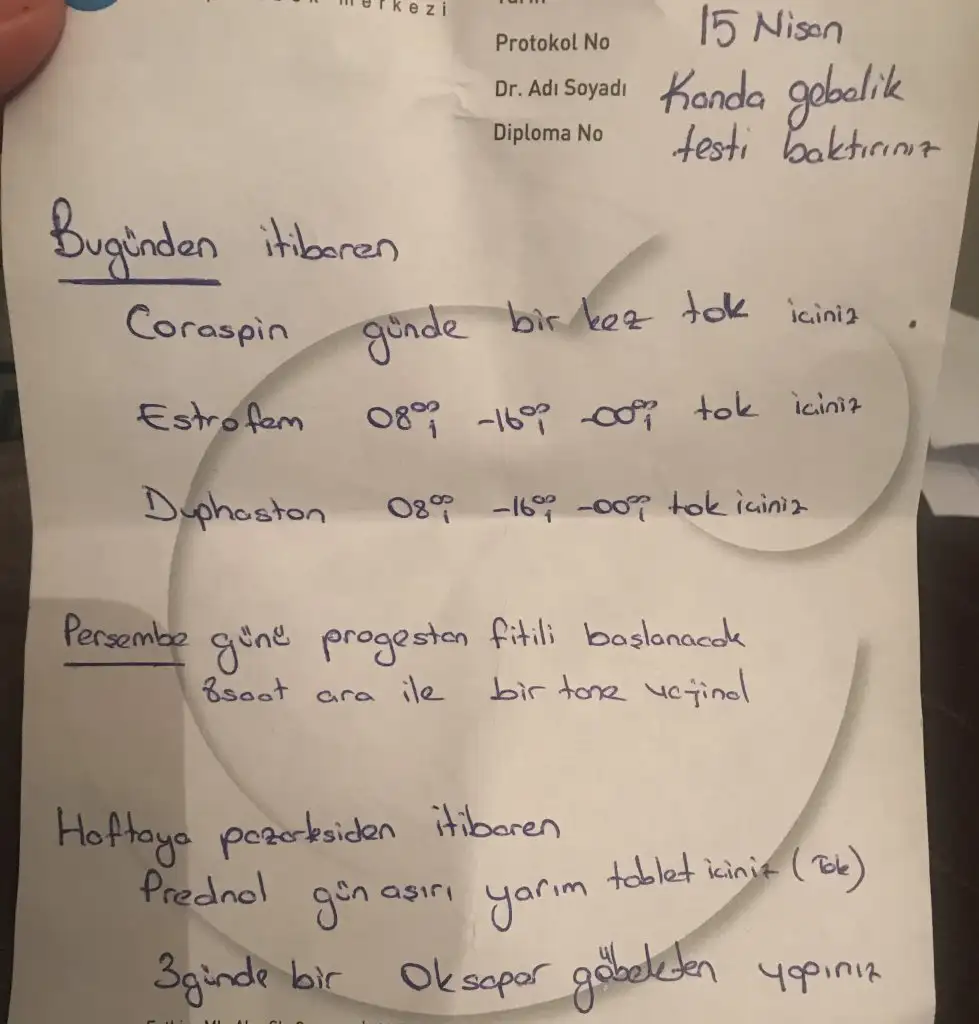 merkezi
Protokol No
15 Nisan
Dr. Adı Soyadı
Kanda gebelik
Diploma No
testi baktırınız
Bugünden itibaren
Coraspin günde bir kez tok içiniz
Estrofem 08⁰⁰, -16⁰⁰, -00⁰⁰, tok içiniz
Duphaston 08⁰⁰, -16⁰⁰, -00⁰⁰, tok içiniz
Perşembe günü progestan fitili başlanacak
8 saat ara ile bir tane vajinal
Haftaya pazarksiden itibaren
Prednol gün aşırı yarım tablet içiniz (Tok)
3 günde bir Oksapar göbekten yapınız